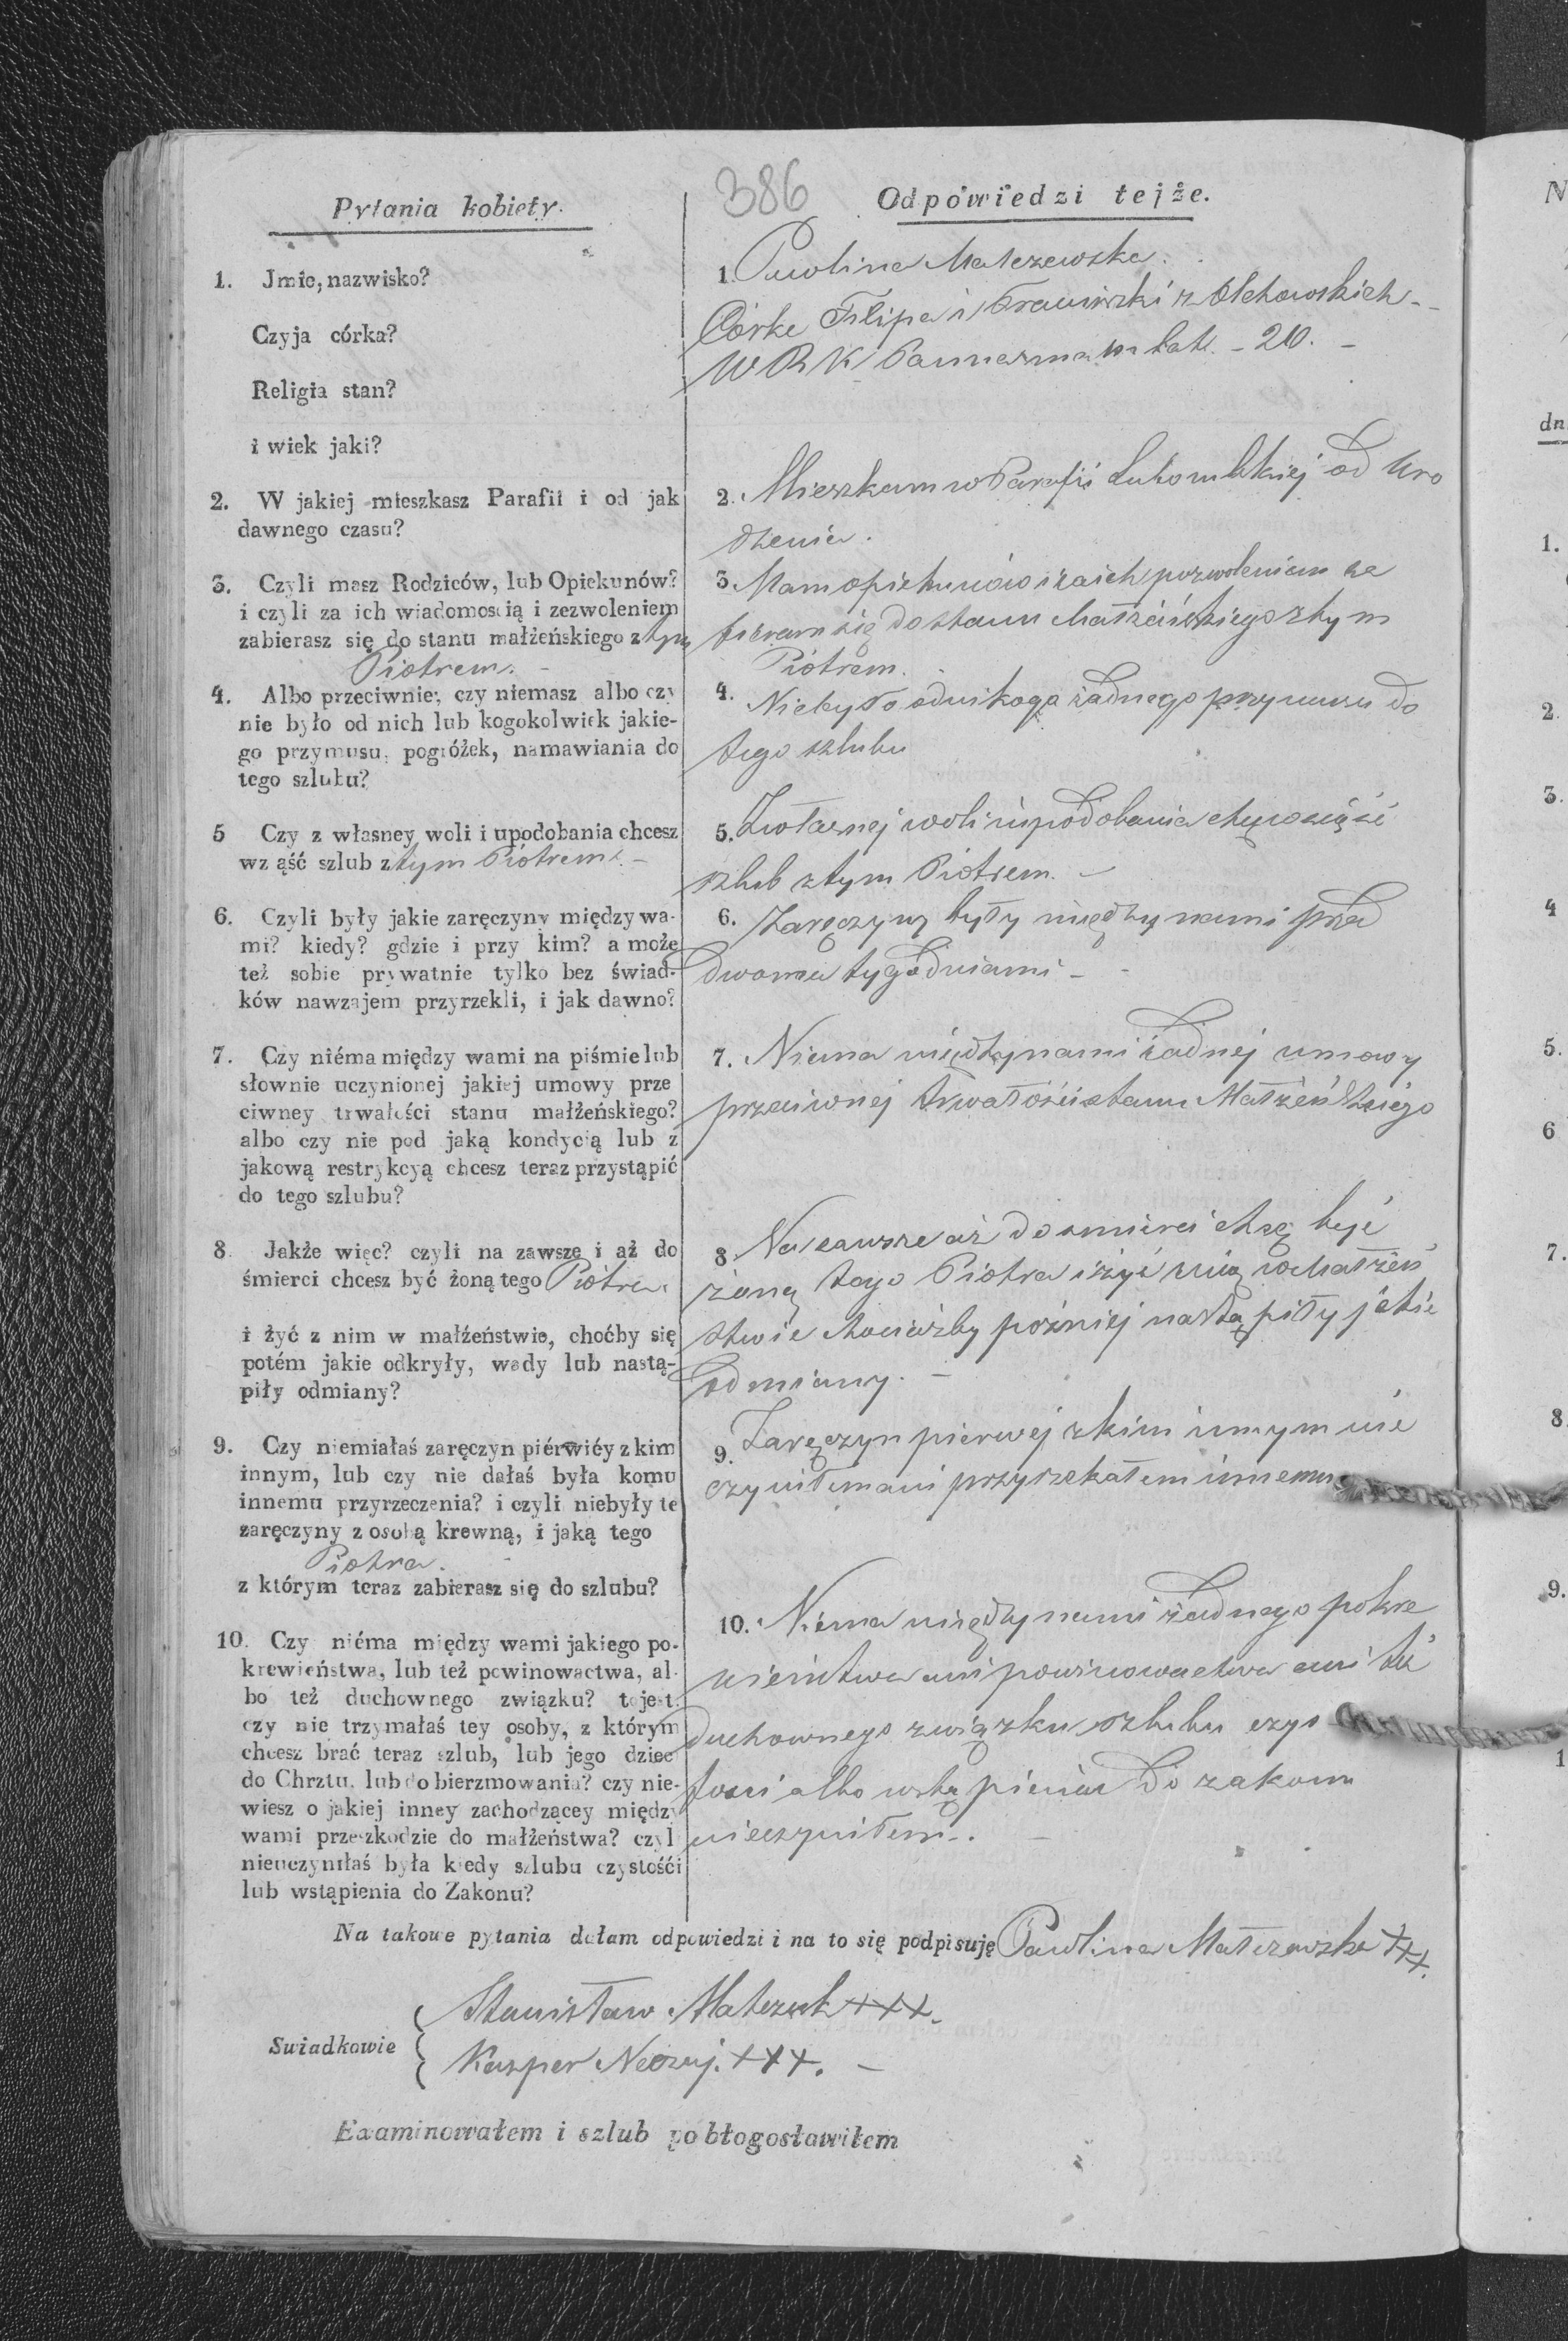 386
Pytania kobiety.
1. Jmie, nazwisko?
Czyja córka?
Religia stan?
i wiek jaki?
2. W jakiej mieszkasz Parafii i od jak
dawnego czasu?
3. Czyli masz Rodziców, lub Opiekunów?
i czyli za ich wiadomością i zezwoleniem
zabierasz się do stanu małżeńskiego z tym
Piotrem. -
4. Albo przeciwnie; czy niemasz albo czy
nie było od nich lub kogokolwiek jakie-
go przymusu, pogróżek, namawiania do
tego szlubu?
5 Czy z własney woli i upodobania chcesz
wz ąść szlub z tym Piotrem. -
6. Czyli były jakie zaręczyny między wa-
mi? kiedy? gdzie i przy kim? a może
też sobie prywatnie tylko bez świad-
ków nawzajem przyrzekli, i jak dawno?
7. Czy niéma między wami na piśmie lub
słownie uczynionej jakiej umowy prze
ciwney trwałości stanu małżeńskiego?
albo czy nie pod jaką kondycią lub z
jakową restrykcyą chcesz teraz przystąpić
do tego szlubu?
8. Jakże więc? czyli na zawsze i aż do
śmierci chcesz być żoną tego Piotra.
i żyć z nim w małżeństwie, choćby się
potém jakie odkryły, wady lub nastą-
piły odmiany?
9. Czy niemiałaś zaręczyn piérwiéy z kim
innym, lub czy nie dałaś była komu
innemu przyrzeczenia? i czyli niebyły te
zaręczyny z osobą krewną, i jaką tego
Piotra.
z którym teraz zabierasz się do szlubu?
10. Czy niéma między wami jakiego po-
krewieństwa, lub też powinowactwa, al-
bo też duchownego związku? to jest:
czy nie trzymałaś tey osoby, z którym
chcesz brać teraz szlub, lub jego dziec
do Chrztu, lub do bierzmowania? czy nie-
wiesz o jakiej inney zachodzącey między
wami przeszkodzie do małżeństwa? czyl
nieuczyniłaś była kiedy szlubu czystośći
lub wstąpienia do Zakonu?
Odpowiedzi tejże.
1. Pawlina Matczewska.
Córka Filipa i Franciszki z Olchowskich -
W R K Panna ma lat - 20. -
2. Mieszkam w Parafii Lutomskiej od Uro
dzenia.
3. Mam opiekunów i za ich pozwoleniem za
bieram się do stanu Małżeńskiego z tym
Piotrem.
4. Niebyło od nikogo żadnego przymusu do
tego szlubu
5. Z własnej woli i upodobania chcę wziąść
szlub z tym Piotrem. -
6. Zaręczyny były między nami przed
dwoma tygodniami -
7. Niema między nami żadnej umowy
przeciwnej trwałości stanu Małżeńskiego
8. Na zawsze aż do smierci chcę być
żoną tego Piotra i żyć z nim w Małżeń
stwie chociażby poźniej nastąpiły jakie
odmiany. -
9. Zaręczyn pierwej z kim innym nie
czyniłem ani przyrzekałem innemu
10. Niema między nami żadnego pokre
wieństwa ani powinowactwa ani też
duchownego związku szlubu czys
tości albo wstąpienia do zakonu
nieczyniłem. -
Na takowe pytania dałam odpowiedzi i na to się podpisuję Pawlina Matczewska +++.
Swiadkowie
Stanisław Matczak +++.
Kasper +++. -
Examinowałem i szlub pobłogosławiłem
N
dn
1.
2.
3.
4
5.
6
7.
8.
9.
1